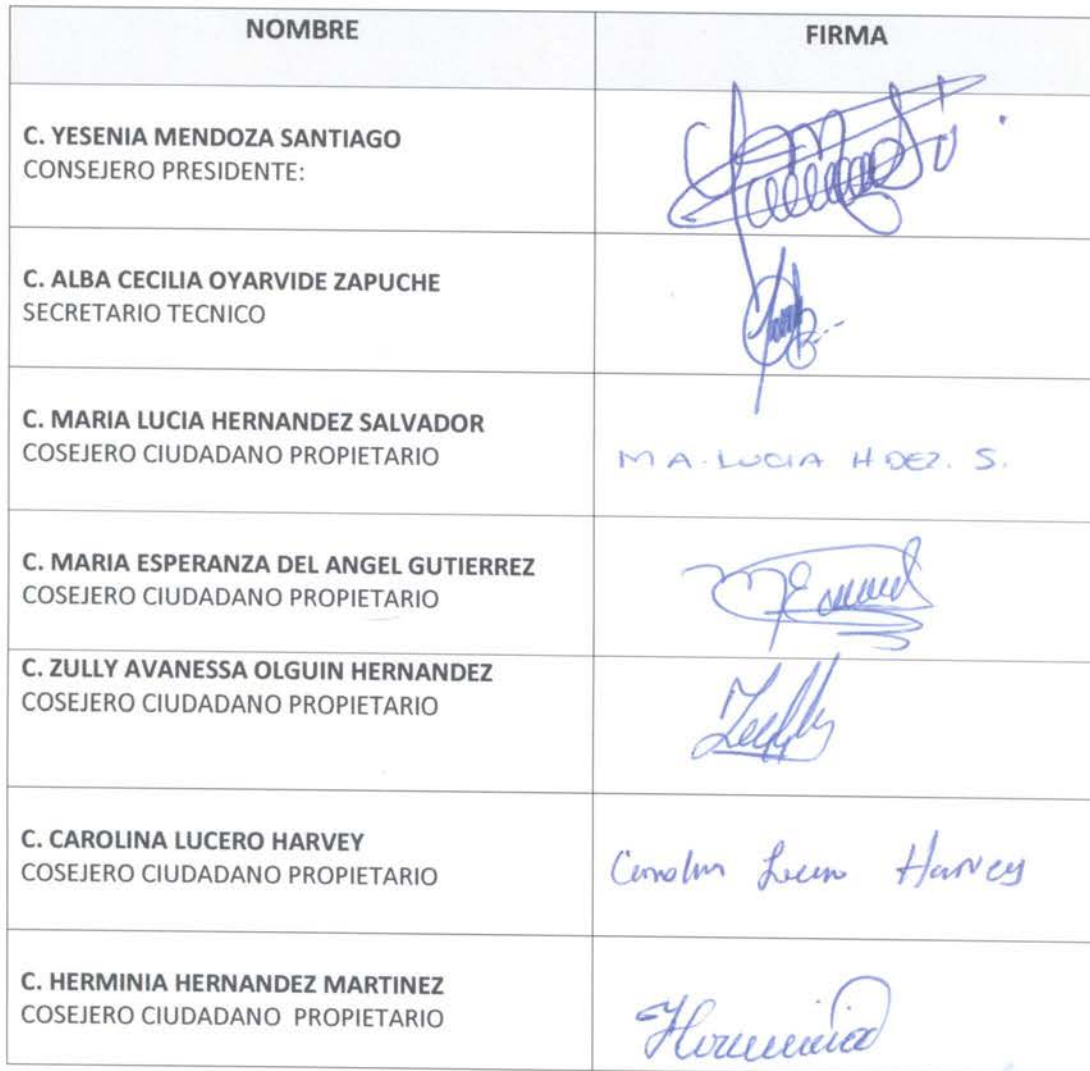 NOMBRE FIRMA
C. YESENIA MENDOZA SANTIAGO
CONSEJERO PRESIDENTE:
C. ALBA CECILIA OYARVIDE ZAPUCHE
SECRETARIO TECNICO
C. MARIA LUCIA HERNANDEZ SALVADOR
COSEJERO CIUDADANO PROPIETARIO
MA. LUCIA HDEZ. S.
C. MARIA ESPERANZA DEL ANGEL GUTIERREZ
COSEJERO CIUDADANO PROPIETARIO
C. ZULLY AVANESSA OLGUIN HERNANDEZ
COSEJERO CIUDADANO PROPIETARIO
C. CAROLINA LUCERO HARVEY
COSEJERO CIUDADANO PROPIETARIO
Harvey
C. HERMINIA HERNANDEZ MARTINEZ
COSEJERO CIUDADANO PROPIETARIO
Herminia